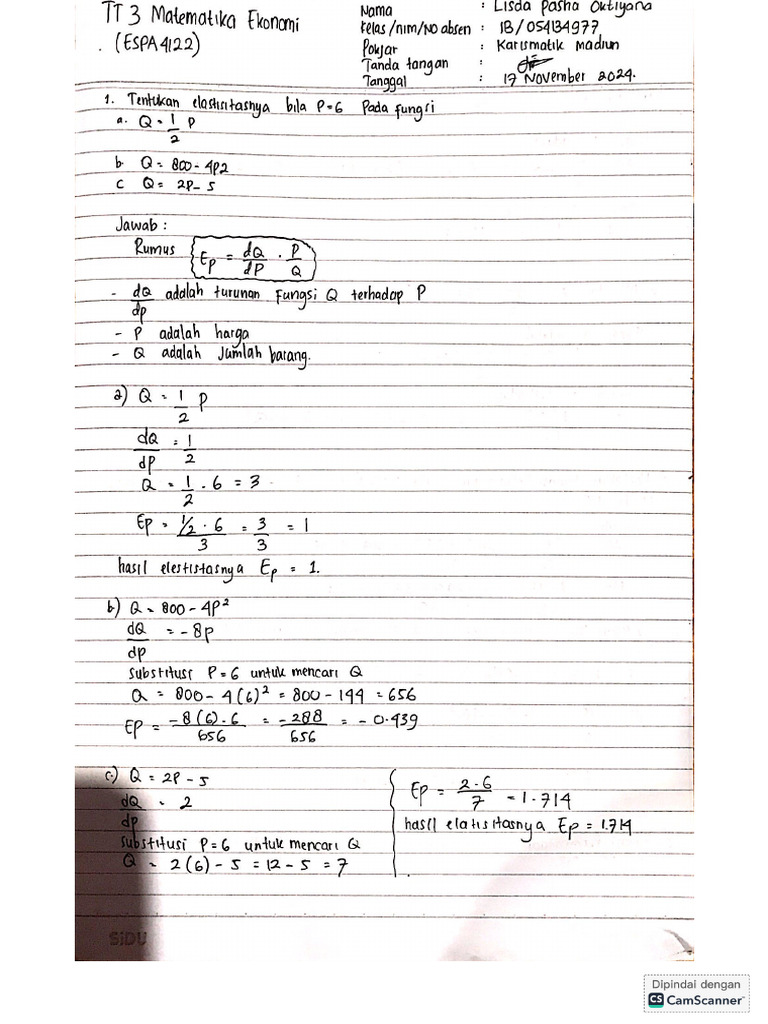 TT 3 Matematika Ekonomi
(ESPA4122)
Nama : Lisda Pasha Oktiyana
Kelas/nim/No absen : 1B/054134977
Pokjar : Karismatik Madiun
Tanda tangan :
Tanggal : 17 November 2024.
1. Tentukan elastisitasnya bila P=6 Pada fungsi
a. Q = 1/2 P
b. Q = 800 - 4P2
c Q = 2P - 5
Jawab :
Rumus Ep = dQ/dP . P/Q
- dQ/dp adalah turunan Fungsi Q terhadap P
- P adalah harga
- Q adalah Jumlah barang.
a) Q = 1/2 P
dQ/dP = 1/2
Q = 1/2 . 6 = 3
Ep = 1/2 . 6 / 3 = 3/3 = 1
hasil elestistasnya Ep = 1.
b) Q = 800 - 4P²
dQ/dp = - 8p
substitusi P = 6 untuk mencari Q
Q = 800 - 4(6)² = 800 - 144 = 656
Ep = -8(6).6 / 656 = -288 / 656 = - 0.439
c.) Q = 2P - 5
dQ/dp = 2
substitusi P=6 untuk mencari Q
Q = 2(6) - 5 = 12 - 5 = 7
Ep = 2.6 / 7 = 1.714
hasil elatisitasnya Ep = 1.714
SiDU
Dipindai dengan
CS CamScanner